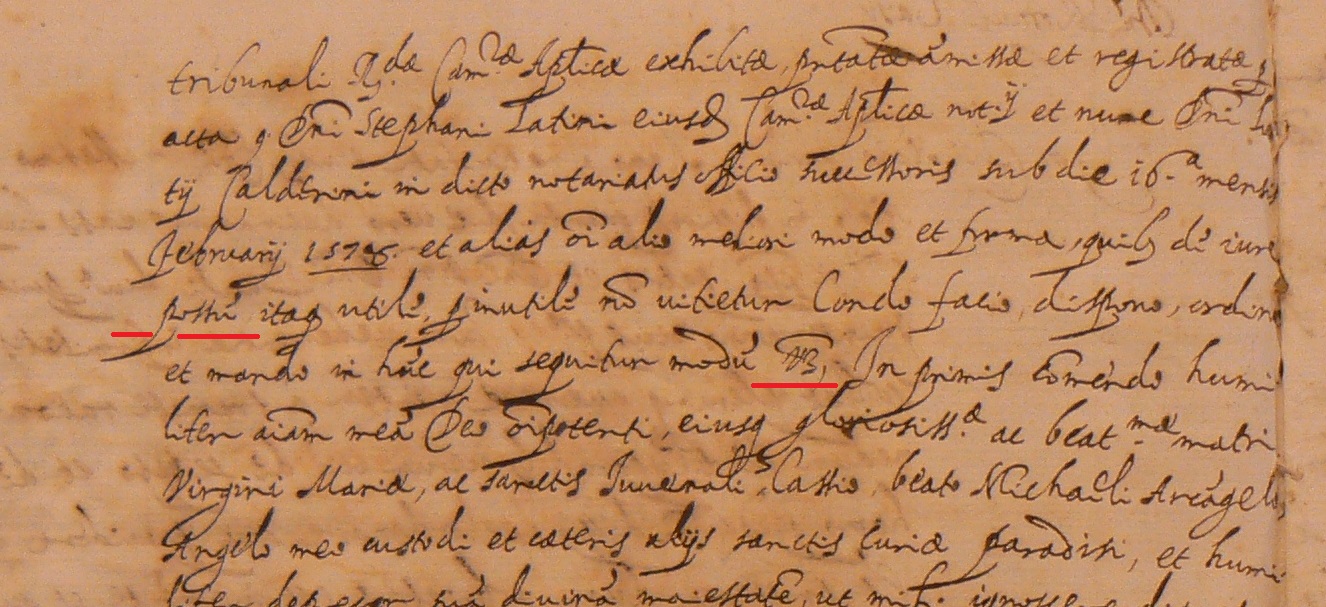 tribunali R.dæ Cam.ræ Aplicæ exhibitæ, pntatæ amissæ et registratæ
acta q Dni Stephani Latini eiusd Cam.ræ Aplicæ notij et nunc Dni
tij Calderini in dicto notariatus officio successoris sub die 16.a mensis
februarij 1578. et alias oi alio meliori modo et forma, quib de iure
possū itaq utilē, p inutilē nō vitietur Condo facio, dispono, ordino
et mando in hūc qui sequitur modū, In primis comēdo humi
liter aīam meā Deo oīpotenti, eiusq gloriosiss.æ ac beat.mæ matri
Virgini Mariæ, ac sanctis Iuvenali, Cassio, beato Michaeli Arcāgelo,
Angelo meo custodi et cæteris alijs sanctis Curiæ paradisi, et humi
liter deprecor suā divinā maiestatē, ut mihi